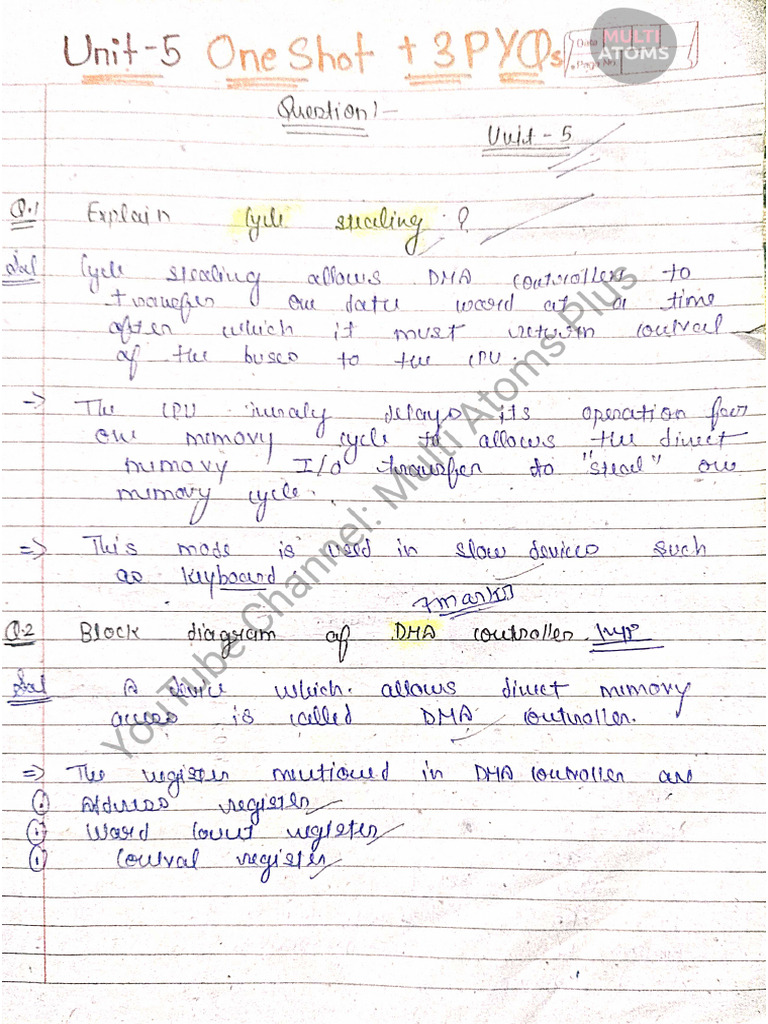 MULTI
ATOMS
Unit-5 One Shot + 3 PYQs
Date
Page No.
Question!-
Unit - 5
Q.1 Explain Cycle stealing ?
Sol Cycle stealing allows DMA controllers to
transfer one data word at a time
after which it must return control
of the buses to the CPU.
=> The CPU merely delays its operation for
one memory cycle to allows the direct
memory I/O transfer to "steal" one
memory cycle.
=> This mode is used in slow devices such
as keyboard.
7 marks
Q.2 Block diagram of DMA controller. Imp
Sol A device which allows direct memory
access is called DMA controller.
=> The register mentioned in DMA controller are
Address register
Word Count register
Control register
YouTube Channel: Multi Atoms Plus